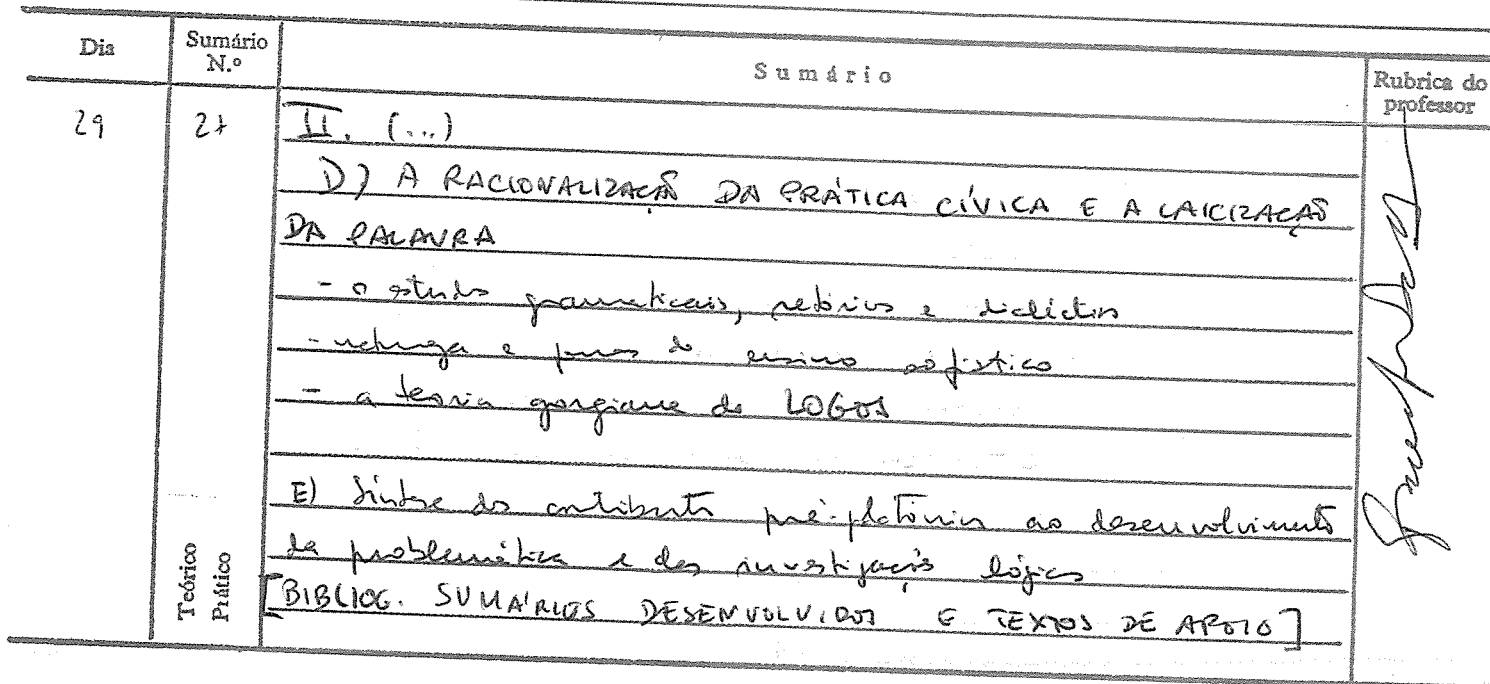 Dia
Sumário N.º
Sumário
Rubrica do professor
29
27
II. (...)
D) A RACIONALIZAÇÃO DA PRÁTICA CÍVICA E A LAICIZAÇÃO
DA PALAVRA
- o estudos gramaticais, retóricos e dialécticos
- natureza e formas do ensino sofístico
- a teoria gorgiana do LOGOS
E) Síntese dos contributos pré-platónicos ao desenvolvimento
da problemática e das investigações lógicas
[BIBLIOG. SUMÁRIOS DESENVOLVIDOS E TEXTOS DE APOIO]
Teórico
Prático